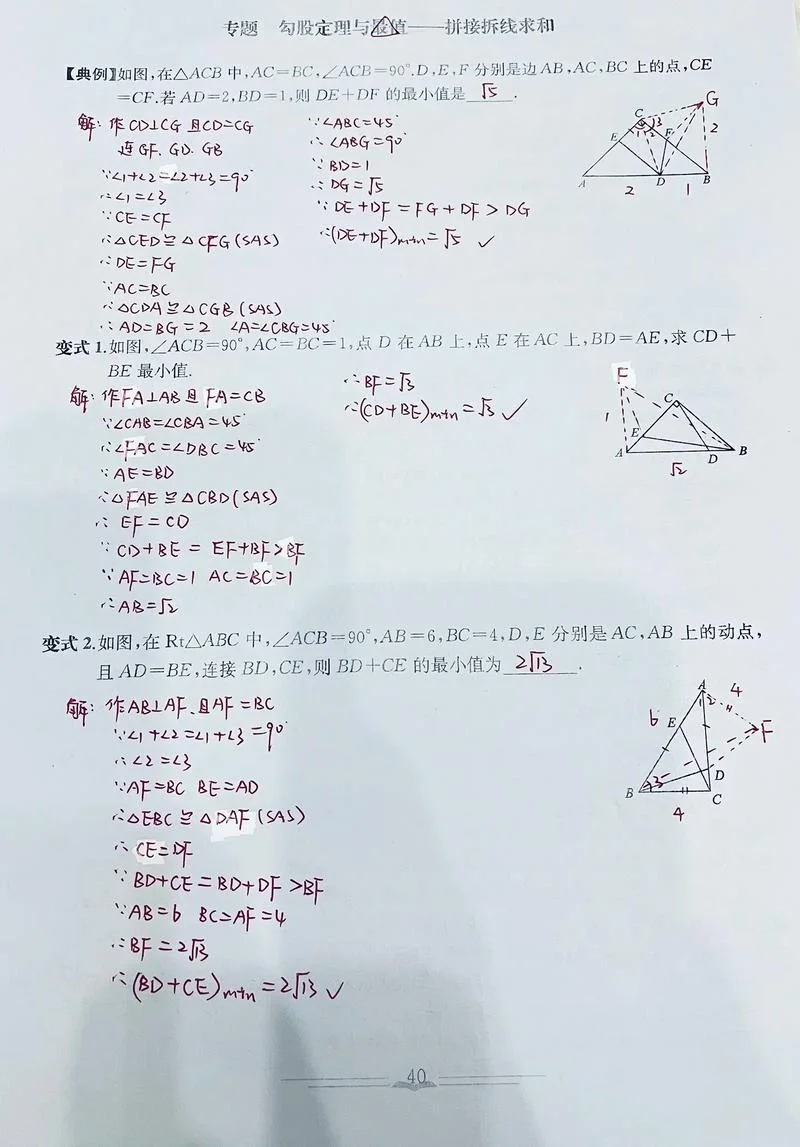 专题 勾股定理与最值——拼接拆线求和
【典例】如图,在△ACB中,AC=BC,∠ACB=90°.D,E,F分别是边AB,AC,BC上的点,CE
=CF.若AD=2,BD=1,则DE+DF的最小值是 √5 .
解:作CD⊥CG且CD=CG
连GF、GD、GB
∵∠1+∠2=∠2+∠3=90°
∴∠1=∠3
∵CE=CF
∴△CED≌△CFG(SAS)
∴DE=FG
∵AC=BC
∴△CDA≌△CGB(SAS)
∴AD=BG=2 ∠A=∠CBG=45°
∵∠ABC=45°
∴∠ABG=90°
∵BD=1
∴DG=√5
∵DE+DF=FG+DF>DG
∴(DE+DF)min=√5 ✓
C G E F 1 2 3 A D B 2 1 2
变式1.如图,∠ACB=90°,AC=BC=1,点D在AB上,点E在AC上,BD=AE,求CD+
BE最小值.
解:作FA⊥AB且FA=CB
∵∠CAB=∠CBA=45°
∴∠FAC=∠DBC=45°
∵AE=BD
∴△FAE≌△CBD(SAS)
∴EF=CD
∵CD+BE=EF+BF>BF
∵AF=BC=1 AC=BC=1
∴AB=√2
∴BF=√3
∴(CD+BE)min=√3 ✓
F C 1 E A D B √2
变式2.如图,在Rt△ABC中,∠ACB=90°,AB=6,BC=4,D,E分别是AC,AB上的动点,
且AD=BE,连接BD,CE,则BD+CE的最小值为 2√13 .
解:作AB⊥AF、且AF=BC
∵∠1+∠2=∠1+∠3=90°
∴∠2=∠3
∵AF=BC BE=AD
∴△EBC≌△DAF(SAS)
∴CE=DF
∵BD+CE=BD+DF>BF
∵AB=6 BC=AF=4
∴BF=2√13
∴(BD+CE)min=2√13 ✓
A 4 1 2 6 E F D B 3 C 4
40